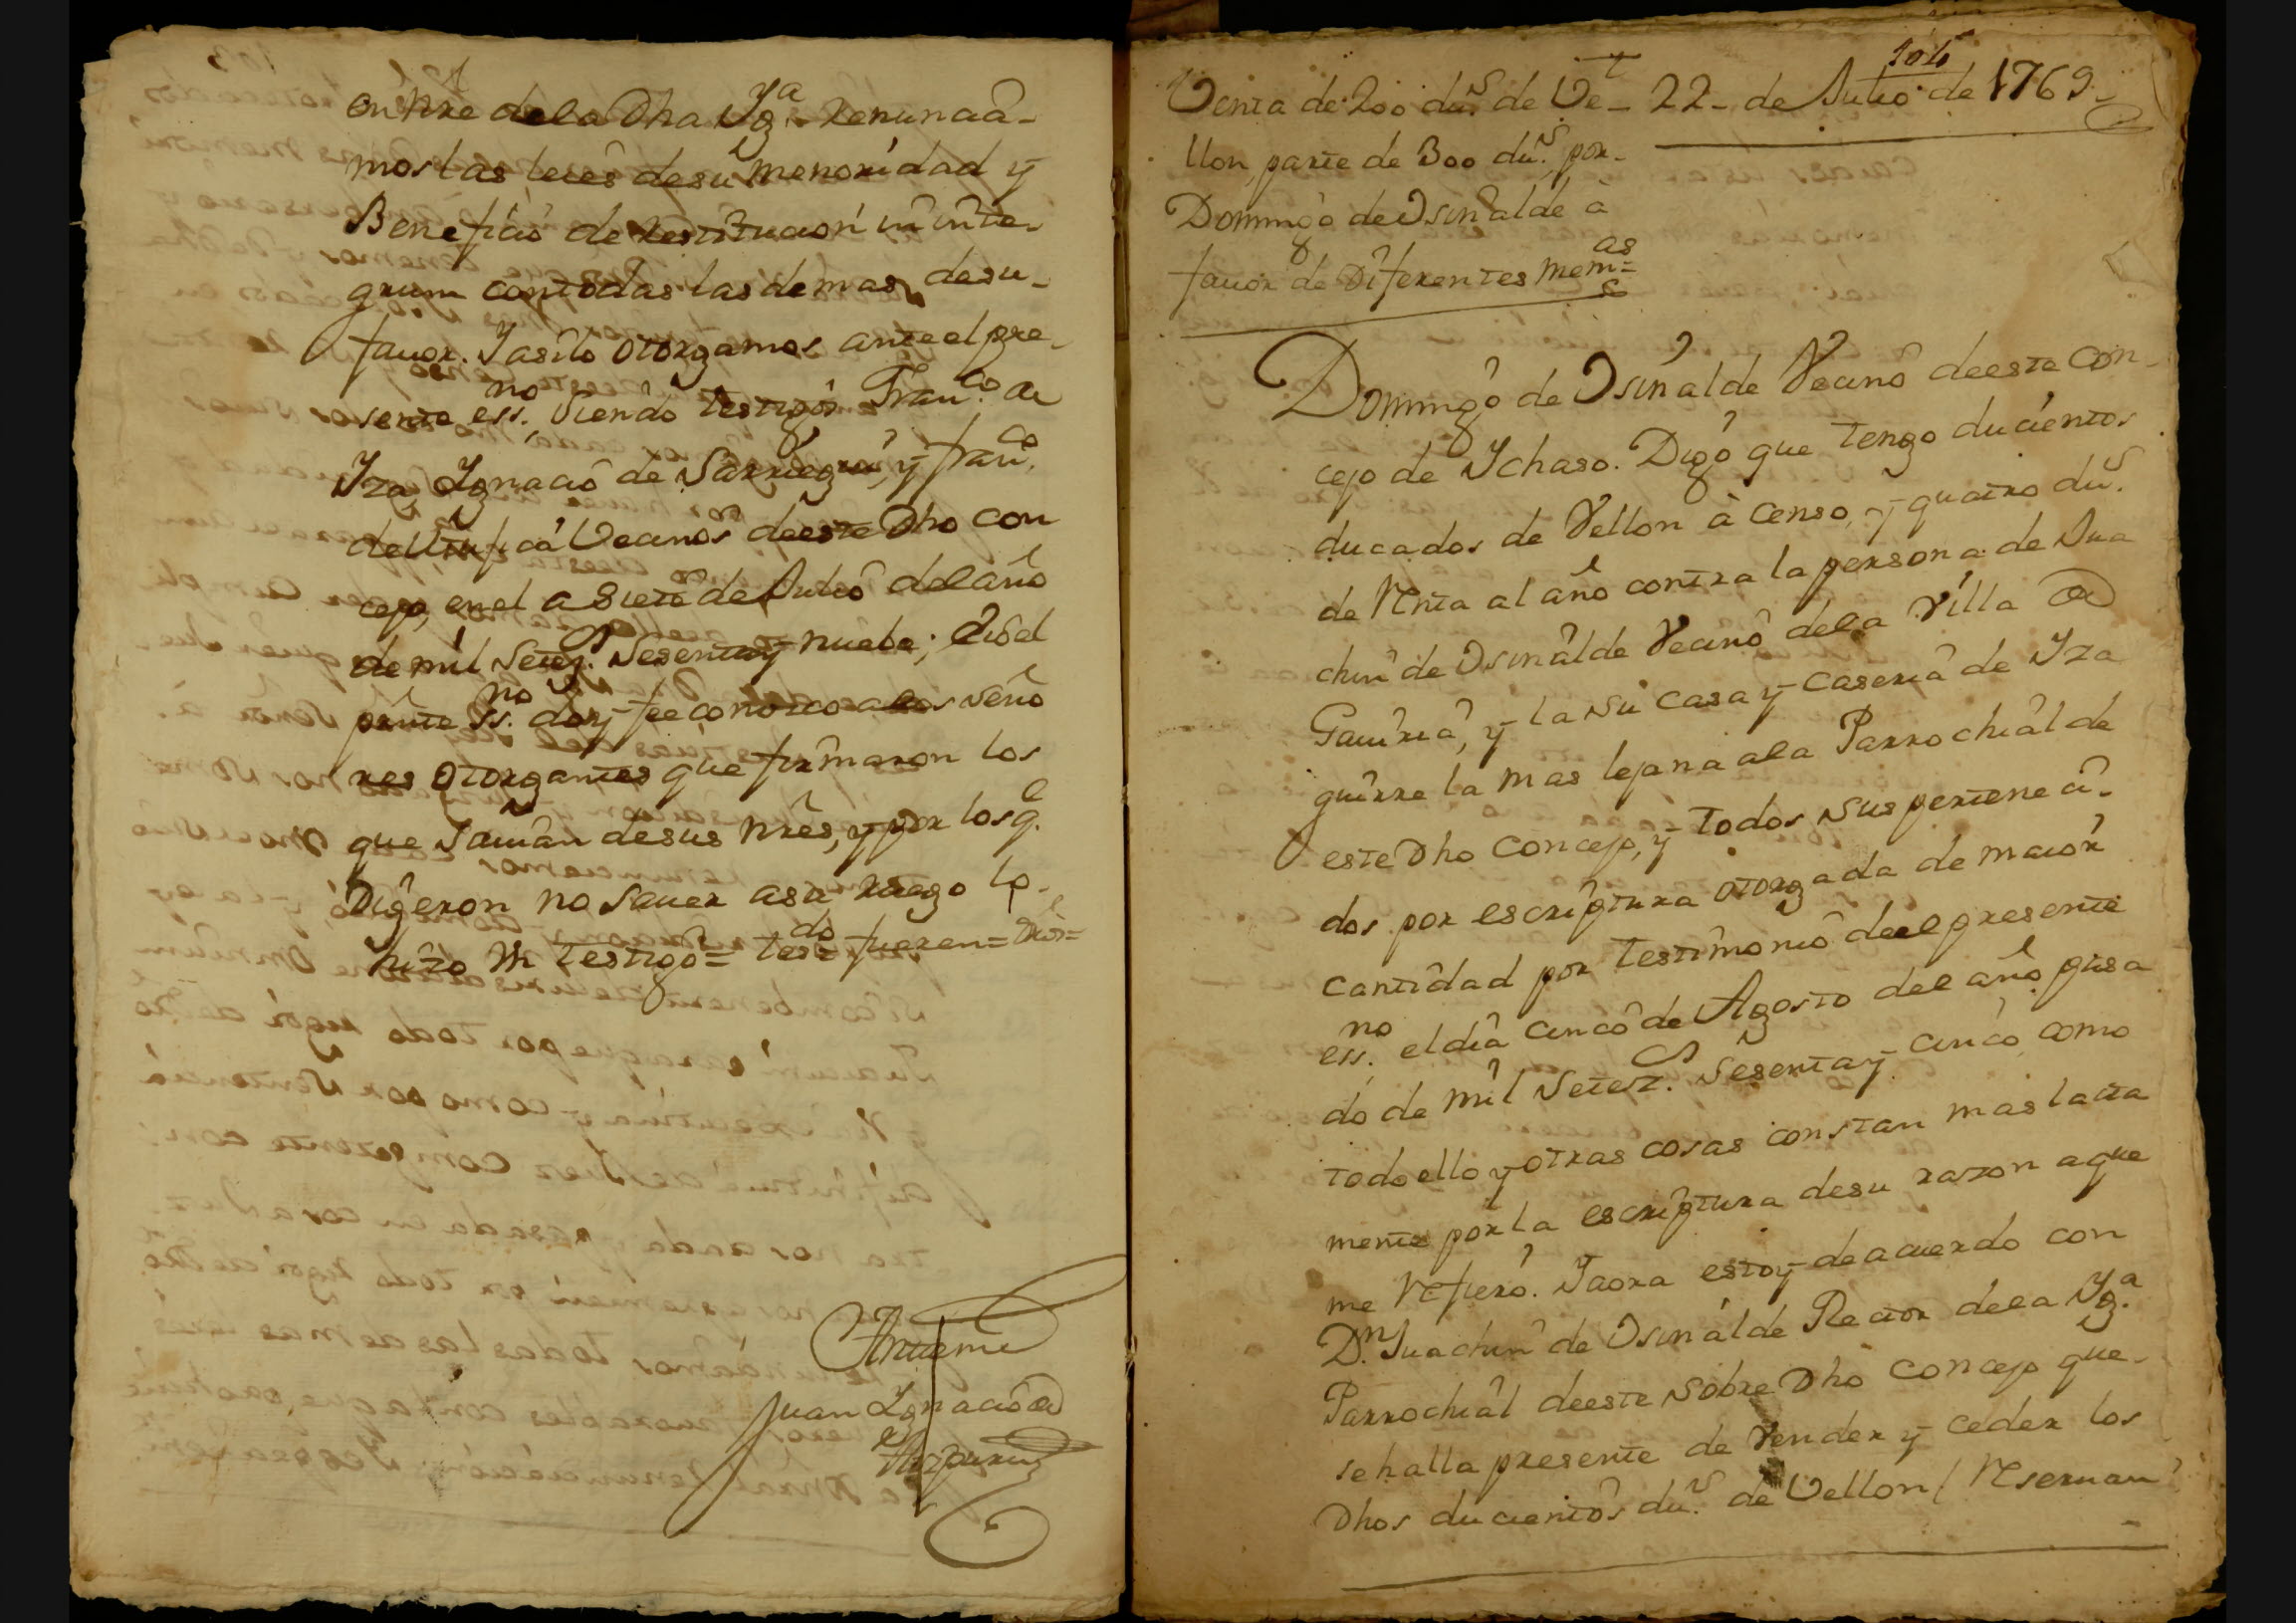 en nre dela Dha Yg.ª renuncia-
mos las leies desu menoridad y
Beneficio de restitucion in inte-
grum contodas las demas desu-
fauor. Iasilo otorgamos ante el pre-
sente ess.no Siendo testigos Fran.co de
Yza, Ygnacio de Sarriegui, y fran.co
de Vecinos deeste Dho con
cejo, en el a Siete de Iulio del año
de mil Setez.s Sesentay nuebe; E Io el
prnte ss.no doy fee conozco alos Seño
res otorgantes que firmaron los
que Sauian desus nres, y por los q.e
Digeron no Sauer asu ruego lo-
hizo Vn testigo= tes.do fueren=
Antemi
Juan Ygnacio de
104
Venta de 200 du.s de Ve- 22- de Iulio de 1769-
llon, parte de 300 du.s por-
Domingo de Osinalde à
fauor de Diferentes mem.as=
Domingo de Osinalde Vecino deeste Con-
cejo de Ychaso. Digo que tengo ducientos
ducados de Vellon à Censo, y quatro du.s
de Renta al año contra la persona de Iua
chin de Osinalde Vecino dela Villa de
Gauiria, y la su Casa y Caseria de Yza
guirre la mas lejana ala Parrochial de
este Dho Concejo, y todos sus pertenecia-
dos por escriptura otorgada de maior
cantidad por testimonio deel presente
ess.no el dia cinco de Agosto del año pasa
do de mil Setez.s Sesentay cinco, como
todo ello y otras cosas constan mas lata
mente por la escriptura desu razon aque
me Refiero. Iaora estoy de acuerdo con
D.n Iuachin de Osinalde Rector dela Yg.ª
Parrochial deeste sobre Dho Concejo que-
se halla presente de Vender y ceder los
Dhos ducientos du.s de Vellon / Reseruan